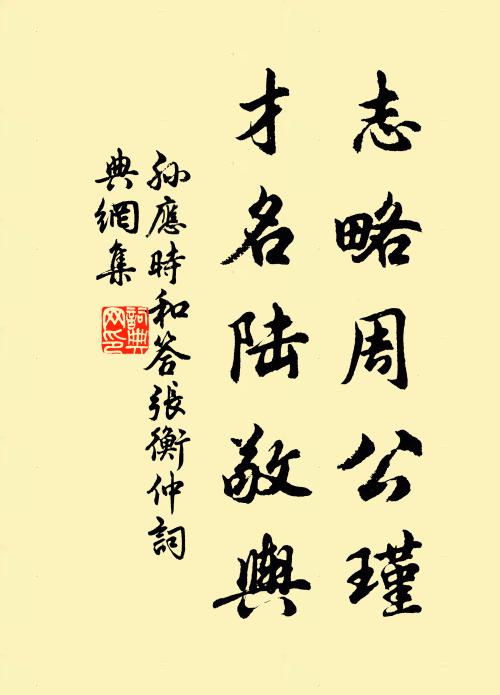 志略周公瑾
才名陆敬輿
孙應時和答張衡仲詞
典網集
詞典网印